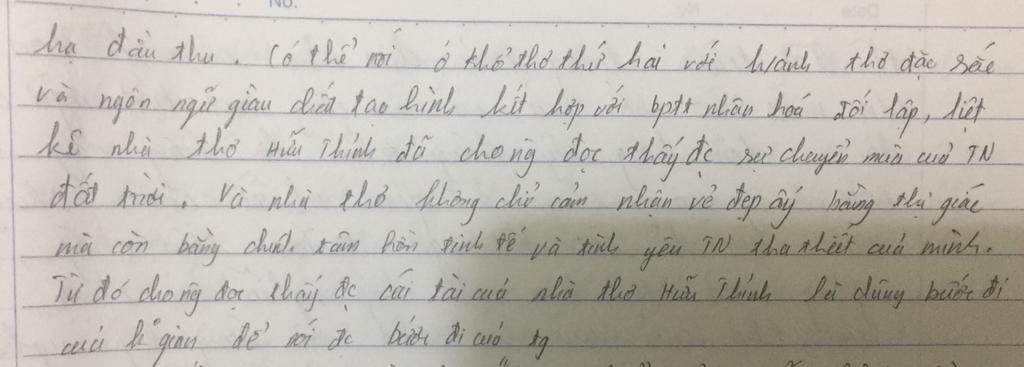 No.
hạ đầu thu. Có thể nói ở khổ thơ thứ hai với h/ảnh thơ đặc sắc
và ngôn ngữ giàu chất tạo hình kết hợp với bptt nhân hoá đối lập, liệt
kê nhà thơ Hữu Thỉnh đã cho ng đọc thấy đc sự chuyển mùa của TN
đất trời. Và nhà thơ không chỉ cảm nhận vẻ đẹp ấy bằng thị giác
mà còn bằng chính tâm hồn tinh tế và tình yêu TN tha thiết của mình.
Từ đó cho ng đọc thấy đc cái tài của nhà thơ Hữu Thỉnh là dùng bước đi
của k gian để nói đc bước đi của tg